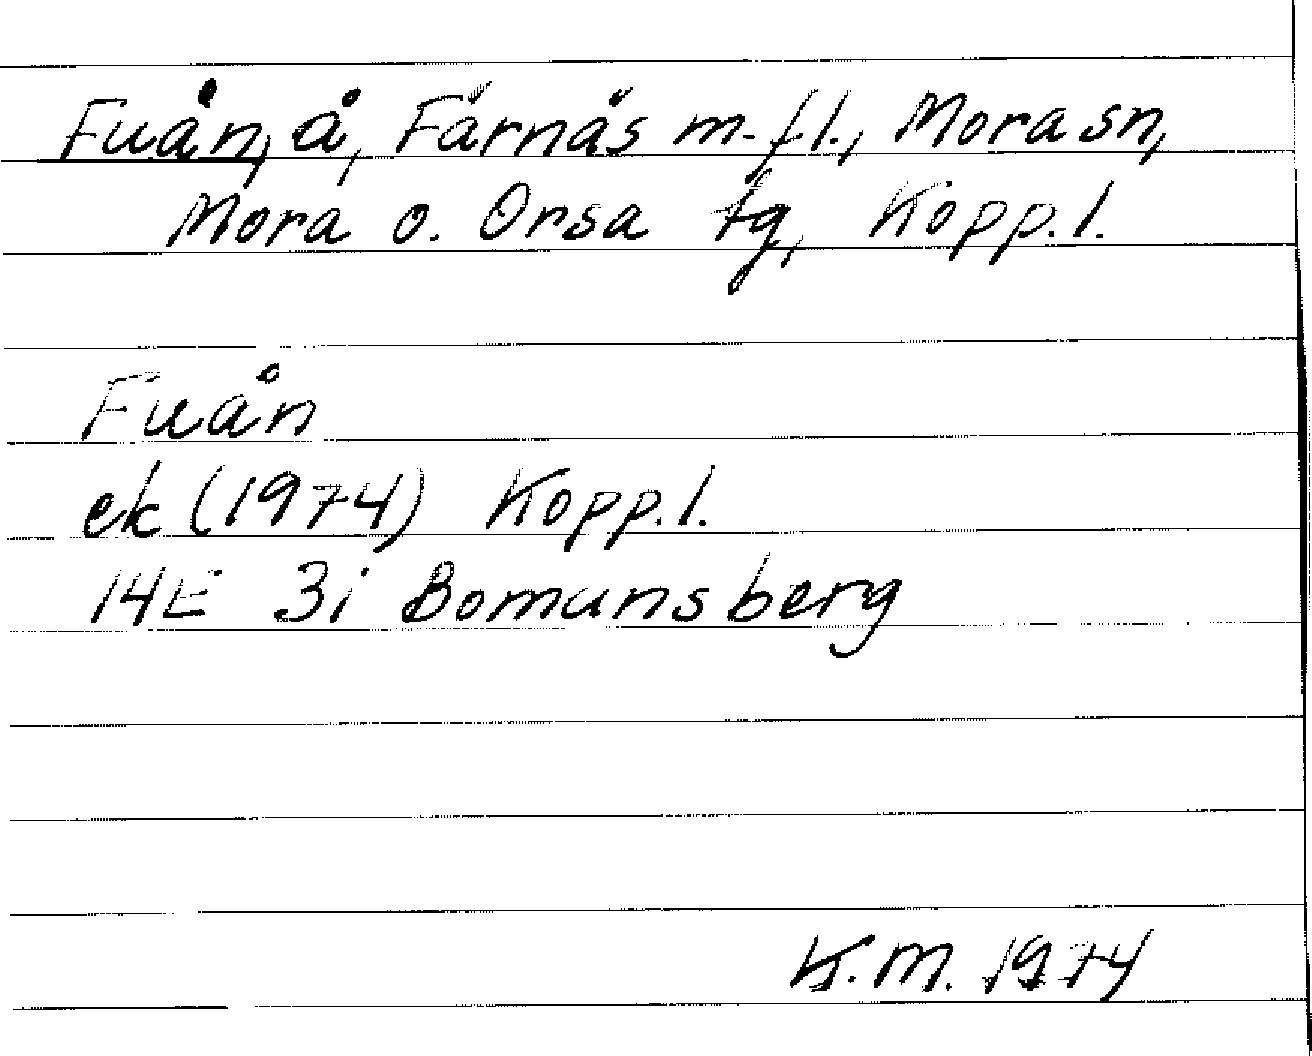 Fuån, å, Färnäs m.fl., Mora sn,
Mora o. Orsa tg, Kopp.l.
Fuån
ek (1974) Kopp.l.
14E 3i Bomansberg
K.M. 1974